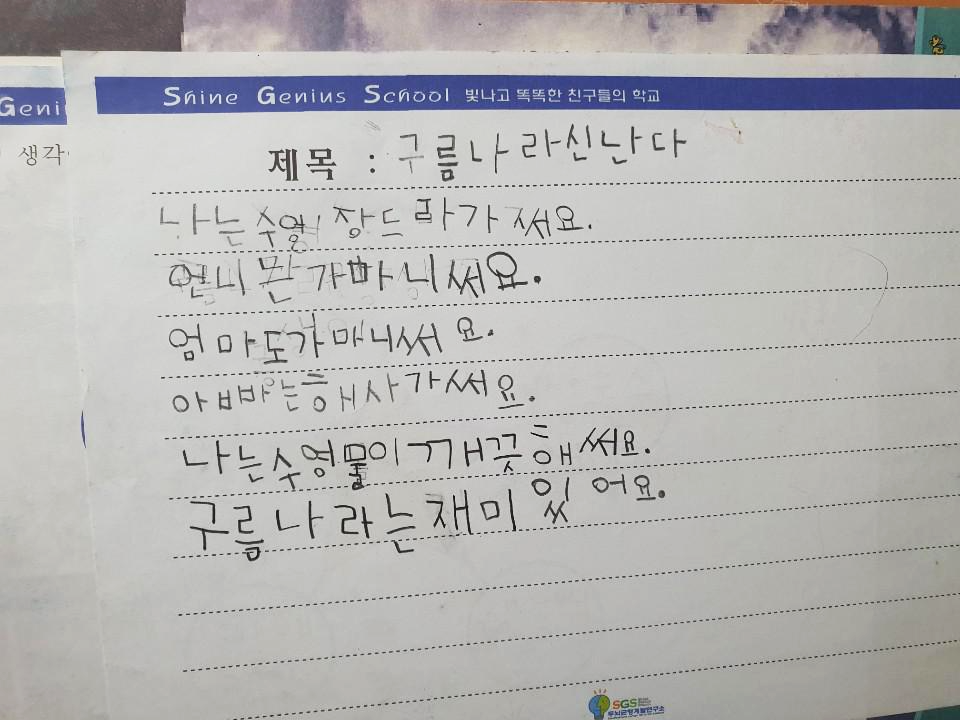 Shine Genius School 빛나고 똑똑한 친구들의 학교
Geni
생각
제목 : 구름나라신난다
나는수영장드라가써요.
언니완가마니써요.
엄마도가마니써요.
아빠는해사가써요.
나는수영물이깨끗해써요.
구름나라는재미있어요.
SGS
두뇌균형계발연구소